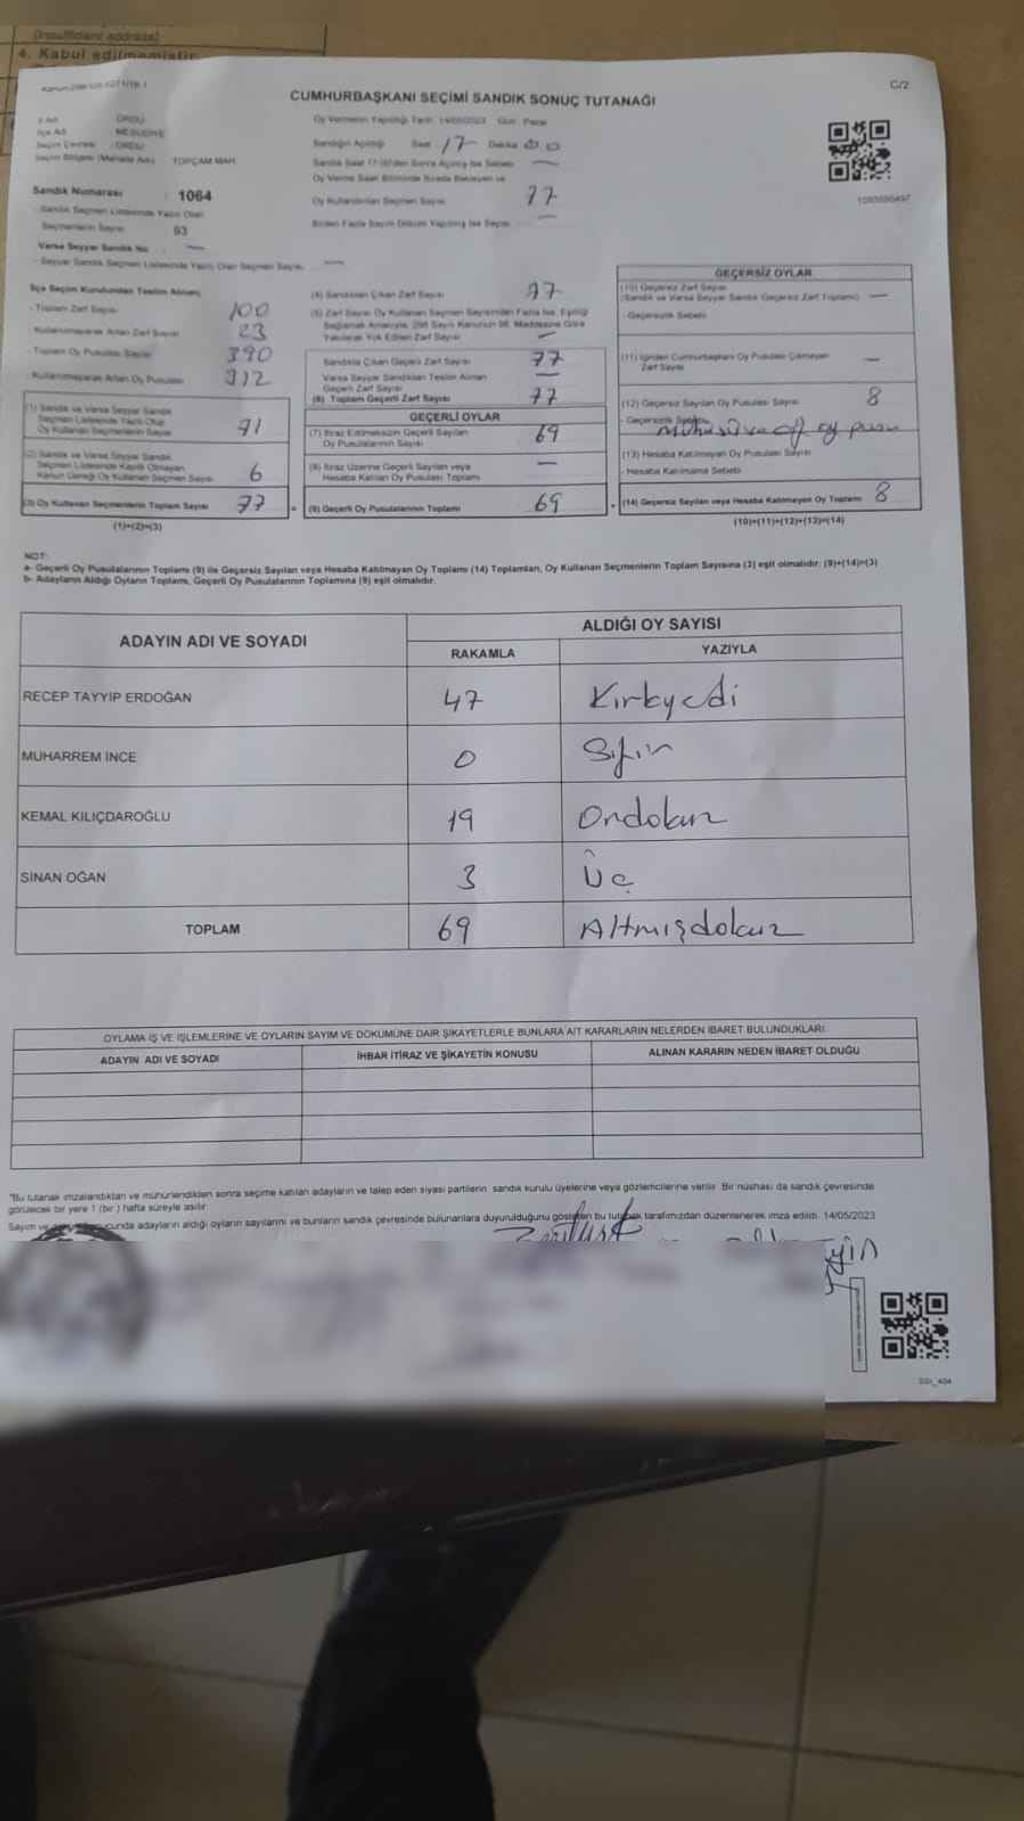 (Insufficient address)
4. Kabul edilmemiştir
C/2
CUMHURBAŞKANI SEÇİMİ SANDIK SONUÇ TUTANAĞI
İl Adı ORDU
İlçe Adı MESUDİYE
Seçim Çevresi ORDU
Seçim Bölgesi (Mahalle Adı) TOPÇAM MAH.
Sandık Numarası : 1064
Sandık Seçmen Listesinde Yazılı Olan
Seçmenlerin Sayısı 93
Varsa Seyyar Sandık No —
Seyyar Sandık Seçmen Listesinde Yazılı Olan Seçmen Sayısı —
Oy Vermenin Yapıldığı Tarih 14/05/2023 Gün Pazar
Sandığın Açıldığı Saat 17 Dakika
Oy Kullandırılan Seçmen Sayısı 77
Birden Fazla Sayım Döküm Yapılmış İse Sayısı —
İlçe Seçim Kurulundan Teslim Alınan;
- Toplam Zarf Sayısı 100
- Kullanılmayarak Artan Zarf Sayısı 23
- Toplam Oy Pusulası Sayısı 390
- Kullanılmayarak Artan Oy Pusulası 312
(1) Sandık ve Varsa Seyyar Sandık
Seçmen Listesinde Yazılı Olup
Oy Kullanan Seçmenlerin Sayısı 71
(2) Sandık ve Varsa Seyyar Sandık
Seçmen Listesinde Kayıtlı Olmayan
Kanun Gereği Oy Kullanan Seçmen Sayısı 6
(3) Oy Kullanan Seçmenlerin Toplam Sayısı 77
(1)+(2)=(3)
(4) Sandıktan Çıkan Zarf Sayısı 77
(5) Zarf Sayısı Oy Kullanan Seçmen Sayısından Fazla İse, Eşitliği
Sağlamak Amacıyla, 298 Sayılı Kanunun 98. Maddesine Göre
Yakılarak Yok Edilen Zarf Sayısı —
Sandıkta Çıkan Geçerli Zarf Sayısı 77
Varsa Seyyar Sandıktan Teslim Alınan
Geçerli Zarf Sayısı —
(6) Toplam Geçerli Zarf Sayısı 77
GEÇERLİ OYLAR
(7) İtiraz Edilmeksizin Geçerli Sayılan
Oy Pusulalarının Sayısı 69
(8) İtiraz Üzerine Geçerli Sayılan veya
Hesaba Katılan Oy Pusulası Toplamı —
(9) Geçerli Oy Pusulalarının Toplamı 69
GEÇERSİZ OYLAR
(10) Geçersiz Zarf Sayısı
(Sandık ve Varsa Seyyar Sandık Geçersiz Zarf Toplamı) —
- Geçersizlik Sebebi
(11) İçinden Cumhurbaşkanı Oy Pusulası Çıkmayan
Zarf Sayısı —
(12) Geçersiz Sayılan Oy Pusulası Sayısı 8
- Geçersizlik Sebebi
(13) Hesaba Katılmayan Oy Pusulası Sayısı
- Hesaba Katılmama Sebebi
(14) Geçersiz Sayılan veya Hesaba Katılmayan Oy Toplamı 8
(10)+(11)+(12)+(13)=(14)
NOT:
a- Geçerli Oy Pusulalarının Toplamı (9) ile Geçersiz Sayılan veya Hesaba Katılmayan Oy Toplamı (14) Toplamları, Oy Kullanan Seçmenlerin Toplam Sayısına (3) eşit olmalıdır. (9)+(14)=(3)
b- Adayların Aldığı Oyların Toplamı, Geçerli Oy Pusulalarının Toplamına (9) eşit olmalıdır.
ADAYIN ADI VE SOYADI ALDIĞI OY SAYISI
RAKAMLA YAZIYLA
RECEP TAYYİP ERDOĞAN 47 Kırkyedi
MUHARREM İNCE 0 Sıfır
KEMAL KILIÇDAROĞLU 19 Ondokuz
SİNAN OĞAN 3 Üç
TOPLAM 69 Altmışdokuz
OYLAMA İŞ VE İŞLEMLERİNE VE OYLARIN SAYIM VE DÖKÜMÜNE DAİR ŞİKAYETLERLE BUNLARA AİT KARARLARIN NELERDEN İBARET BULUNDUKLARI
ADAYIN ADI VE SOYADI İHBAR İTİRAZ VE ŞİKAYETİN KONUSU ALINAN KARARIN NEDEN İBARET OLDUĞU
"Bu tutanak imzalandıktan ve mühürlendikten sonra seçime katılan adayların ve talep eden siyasi partilerin sandık kurulu üyelerine veya gözlemcilerine verilir. Bir nüshası da sandık çevresinde
görülecek bir yere 1 (bir) hafta süreyle asılır.
Sayım ve ucunda adayların aldığı oyların sayılarını ve bunların sandık çevresinde bulunanlara duyurulduğunu gösteren bu tutanak tarafımızdan düzenlenerek imza edildi. 14/05/2023